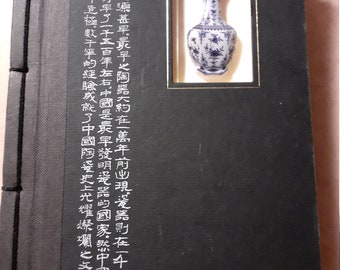 甚早,最早之陶器大約在一萬年前出現,瓷器則在一千
早了一千五百年左右,中國是最早發明瓷器的國家,然中
數千年的經驗成就了中國陶瓷史上光耀燦爛之文